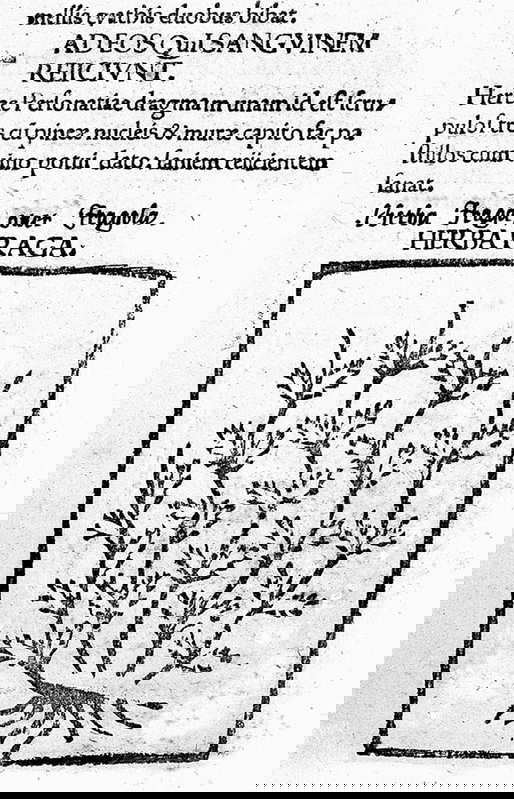 mellis cyathis duobus bibat.
AD EOS QuI SANGVINEM
REIICIVNT.
Herbæ Personatiæ dragmam unam id est scru-
pulos tres cū pineæ nucleis & muræ capito fac pa
stillos cum uino potui dato: saniem reiicientem
sanat.
Herba fraga
HERBA FRAGA.